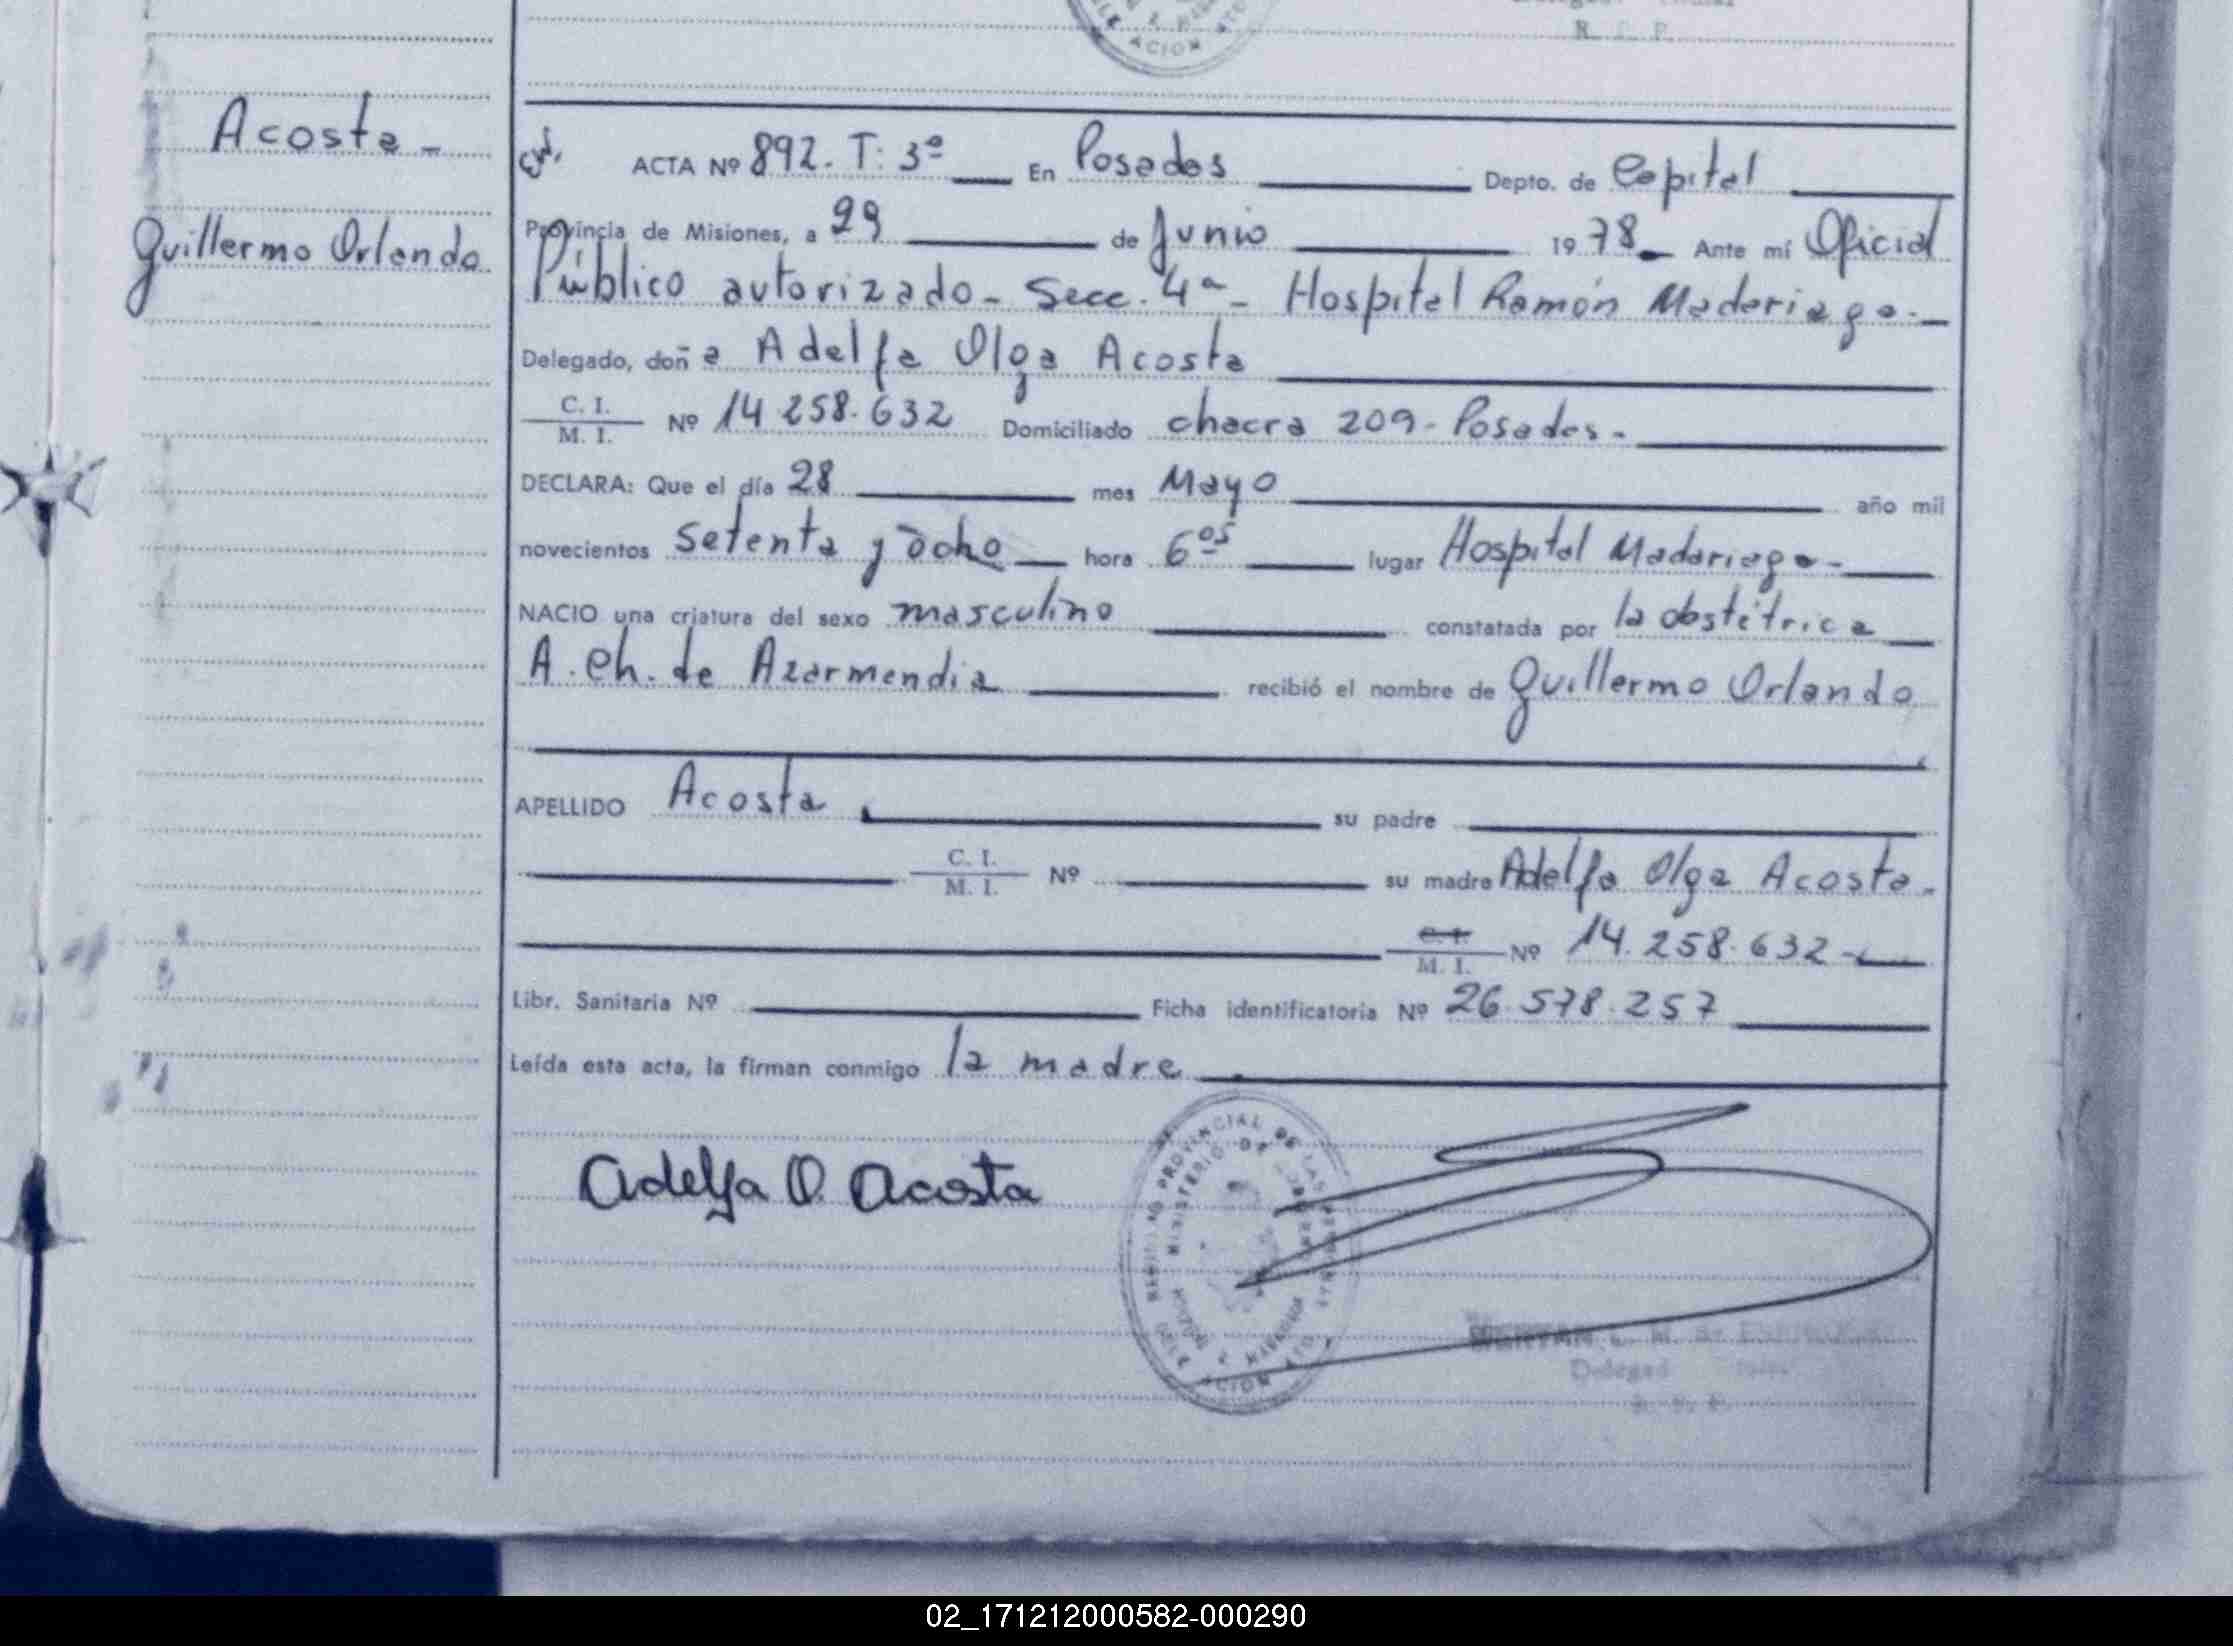 R. C. P.
Acosta -
Guillermo Orlando
ACTA Nº 892. T: 3º En Posadas Depto. de Capital
Provincia de Misiones, a 29 de Junio 1978 Ante mí Oficial
Público autorizado - Secc. 4ª - Hospital Ramón Madariaga.-
Delegado, doña Adelfa Olga Acosta
C. I.
M. I. Nº 14 258.632 Domiciliado chacra 209 - Posadas -
DECLARA: Que el día 28 mes Mayo año mil
novecientos setenta y ocho hora 6 05 lugar Hospital Madariaga -
NACIO una criatura del sexo masculino constatada por la obstétrica
A. Ch. de Azarmendia recibió el nombre de Guillermo Orlando
APELLIDO Acosta su padre
C. I.
M. I. Nº su madre Adelfa Olga Acosta -
C. I.
M. I. Nº 14.258.632 -
Libr. Sanitaria Nº Ficha identificatoria Nº 26.578.257
Leída esta acta, la firman conmigo la madre
Adelfa O. Acosta
REGISTRO PROVINCIAL DE LAS PERSONAS
MINISTERIO DE GOBIERNO
02_171212000582-000290